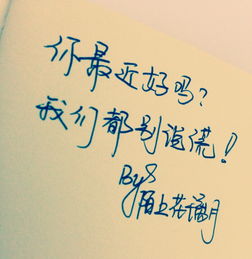 你最近好吗?
我们都别说谎!
By8
陌上花满月